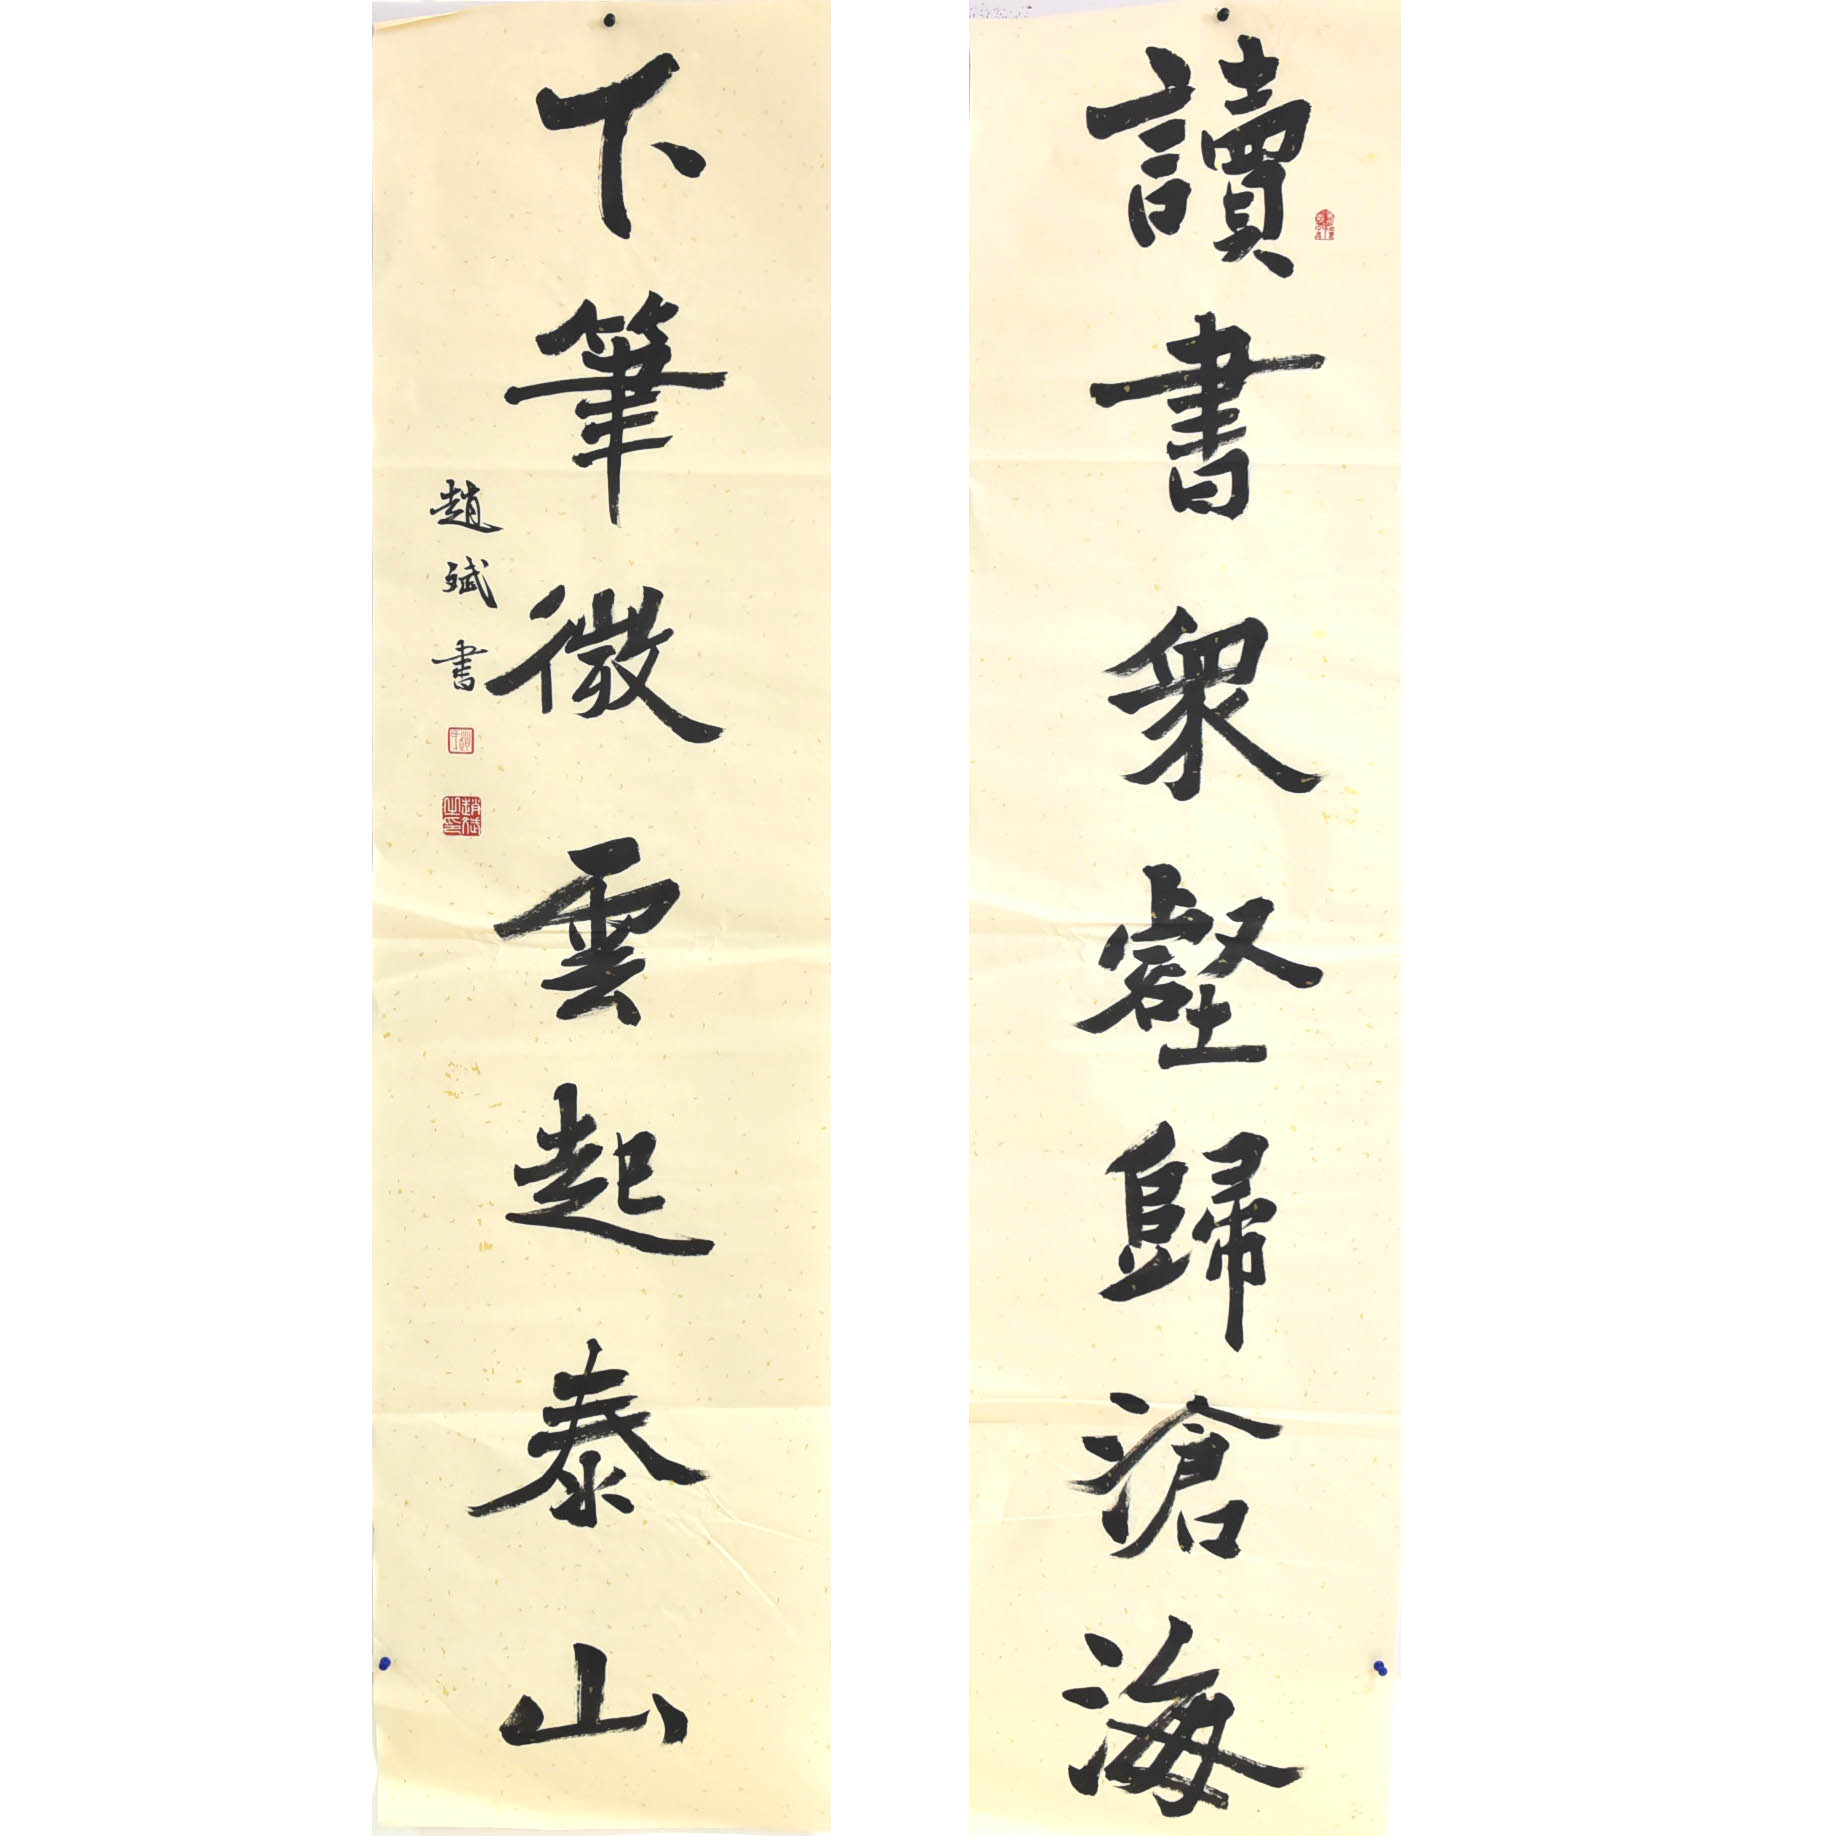 讀書衆壑歸滄海
下筆微雲起泰山
趙斌書
趙斌之印